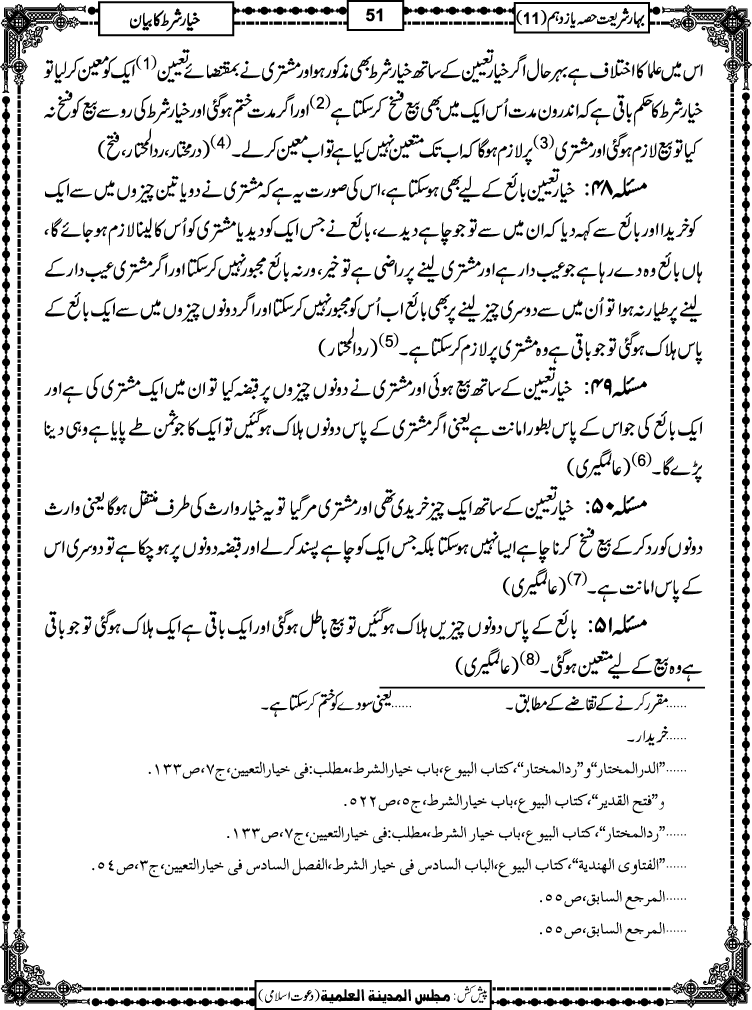 بہارِ شریعت حصہ یازدہم (11)
51
خیار شرط کا بیان
اس میں علما کا اختلاف ہے بہر حال اگر خیار تعیین کے ساتھ خیار شرط بھی مذکور ہوا اور مشتری نے بمقتضائے تعیین (1) ایک کو معین کر لیا تو
خیار شرط کا حکم باقی ہے کہ اندرون مدت اُس ایک میں بھی بیع فسخ کر سکتا ہے (2) اور اگر مدت ختم ہوگئی اور خیار شرط کی رو سے بیع کو فسخ نہ
کیا تو بیع لازم ہوگئی اور مشتری (3) پر لازم ہوگا کہ اب تک متعین نہیں کیا ہے تو اب معین کر لے۔ (4) (درمختار، ردالمحتار، فتح)
مسئلہ ۴۸: خیار تعیین بائع کے لیے بھی ہوسکتا ہے، اس کی صورت یہ ہے کہ مشتری نے دو یا تین چیزوں میں سے ایک
کو خریدا اور بائع سے کہہ دیا کہ ان میں سے تو جو چاہے دیدے، بائع نے جس ایک کو دیدیا مشتری کو اُس کا لینا لازم ہو جائے گا،
ہاں بائع وہ دے رہا ہے جو عیب دار ہے اور مشتری لینے پر راضی ہے تو خیر، ورنہ بائع مجبور نہیں کر سکتا اور اگر مشتری عیب دار کے
لینے پر طیار نہ ہوا تو اُن میں سے دوسری چیز لینے پر بھی بائع اب اُس کو مجبور نہیں کر سکتا اور اگر دونوں چیزوں میں سے ایک بائع کے
پاس ہلاک ہوگئی تو جو باقی ہے وہ مشتری پر لازم کر سکتا ہے۔ (5) (ردالمحتار)
مسئلہ ۴۹: خیار تعیین کے ساتھ بیع ہوئی اور مشتری نے دونوں چیزوں پر قبضہ کیا تو ان میں ایک مشتری کی ہے اور
ایک بائع کی جو اس کے پاس بطور امانت ہے یعنی اگر مشتری کے پاس دونوں ہلاک ہوگئیں تو ایک کا جو ثمن طے پایا ہے وہی دینا
پڑے گا۔ (6) (عالمگیری)
مسئلہ ۵۰: خیار تعیین کے ساتھ ایک چیز خریدی تھی اور مشتری مر گیا تو یہ خیار وارث کی طرف منتقل ہوگا یعنی وارث
دونوں کو رد کر کے بیع فسخ کرنا چاہے ایسا نہیں ہوسکتا بلکہ جس ایک کو چاہے پسند کر لے اور قبضہ دونوں پر ہو چکا ہے تو دوسری اس
کے پاس امانت ہے۔ (7) (عالمگیری)
مسئلہ ۵۱: بائع کے پاس دونوں چیزیں ہلاک ہوگئیں تو بیع باطل ہوگئی اور ایک باقی ہے ایک ہلاک ہوگئی تو جو باقی
ہے وہ بیع کے لیے متعین ہوگئی۔ (8) (عالمگیری)
......مقرر کرنے کے تقاضے کے مطابق۔ ......یعنی سودے کو ختم کر سکتا ہے۔
......خریدار۔
......"الدرالمختار" و "ردالمحتار"، کتاب البیوع، باب خیار الشرط، مطلب: فی خیار التعیین، ج۷، ص۱۳۳.
و "فتح القدیر"، کتاب البیوع، باب خیار الشرط، ج۵، ص۵۲۲.
......"ردالمحتار"، کتاب البیوع، باب خیار الشرط، مطلب: فی خیار التعیین، ج۷، ص۱۳۳.
......"الفتاوی الهندیة"، کتاب البیوع، الباب السادس فی خیار الشرط، الفصل السادس فی خیار التعیین، ج۳، ص۵٤.
......المرجع السابق، ص۵۵.
......المرجع السابق، ص۵۵.
پیش کش: مجلس المدینة العلمیة (دعوت اسلامی)